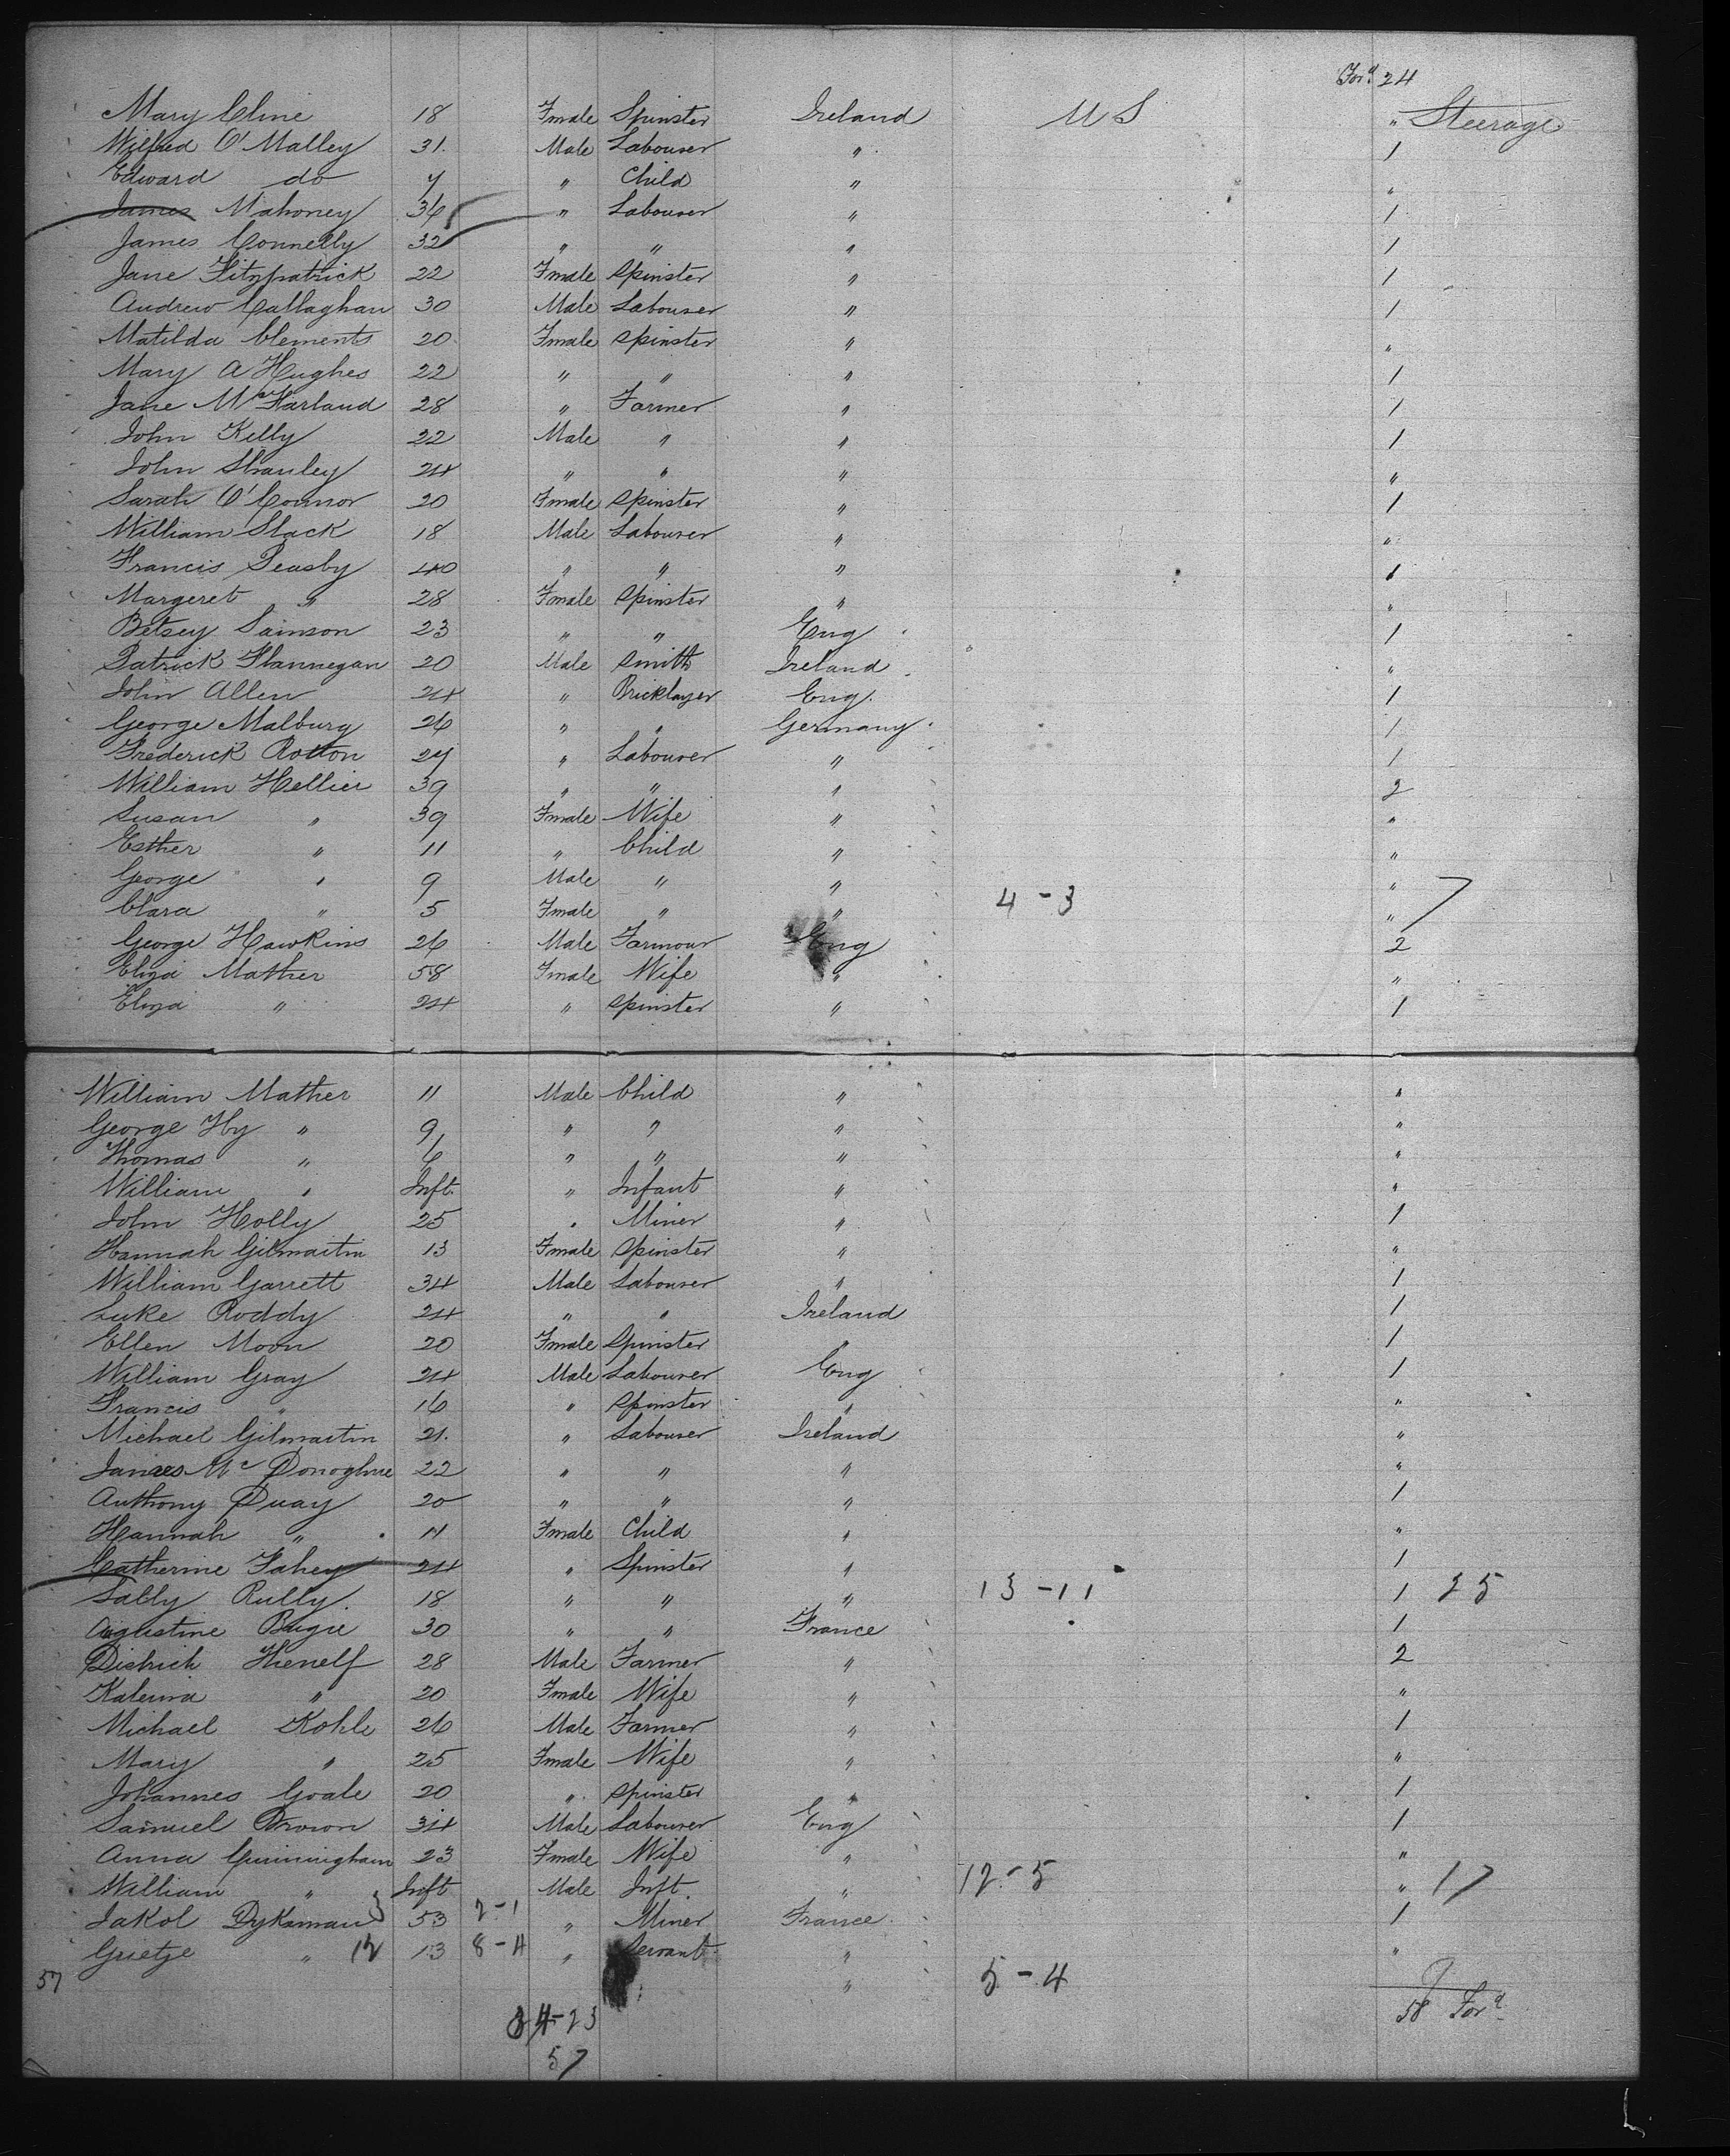 Ford 24
Mary Cline 18 Fmale Spinster Ireland U S " Steerage
Wilfred O'Malley 31. Male Labourer " 1
Edward do 7 " Child " "
James Mahoney 36 " Labourer " 1
James Connelly 32 " " " 1
Jane Fitzpatrick 22 Fmale Spinster " 1
Andrew Callaghan 30 Male Labourer " 1
Matilda Clements 20 Fmale Spinster " "
Mary A Hughes 22 " " " 1
Jane McFarland 28 " Farmer " 1
John Kelly 22 Male " " 1
John Stanley 24 " " " "
Sarah O'Connor 20 Fmale Spinster " 1
William Slack 18 Male Labourer " "
Francis Peasby 40 " " " 1
Margeret " 28 Fmale Spinster " "
Betsey Samson 23 " " Eng 1
Patrick Flannegan 20 Male Smith Ireland "
John Allen 24 " Bricklayer Eng. 1
George Malburg 26 " " Germany 1
Frederick Rotton 27 " Labourer " 1
William Hellier 39 " " " 2
Susan " 39 Fmale Wife " "
Esther " 11 " Child " "
George " 9 Male " " "
Clara " 5 Fmale " " 4-3 " 7
George Hawkins 26 Male Farmour Eng 2
Eliza Mather 58 Fmale Wife " "
Eliza " 24 " Spinster " 1
William Mather 11 Male Child " "
George Hy " 9 " " " "
Thomas " 6 " " " "
William " Inft. " Infant " "
John Holly 25 " Miner " 1
Hannah Gilmartin 13 Fmale Spinster " "
William Garrett 34 Male Labourer " 1
Luke Roddy 24 " " Ireland 1
Ellen Moon 20 Fmale Spinster " 1
William Gray 24 Male Labourer Eng 1
Francis " 16 " Spinster " "
Michael Gilmartin 21. " Labourer Ireland "
James Mc Donoghue 22 " " " "
Anthony Duay 20 " " " 1
Hannah " 11 Fmale Child " "
Catherine Fahey 24 " Spinster " 1
Sally Rully. 18 " " " 13-11 1 25
Augustine Bugie 30 " " France 1
Dietrich Hienelf 28 Male Farmer " 2
Katerina " 20 Fmale Wife " "
Michael Kohle 26 Male Farmer " 1
Mary " 25 Fmale Wife " "
Johannes Goale 20 " Spinster " 1
Samuel Brown 34 Male Labourer Eng 1
Anna Cunningham 23 Fmale Wife " "
William " Inft Male Inft. " 12-5 " 17
Jakol Dykeman 53 2-1 " Miner France 1
Grietje " 12 13 8-4 " Servant " "
57 " 5-4 9
58 Ford
34-23
57